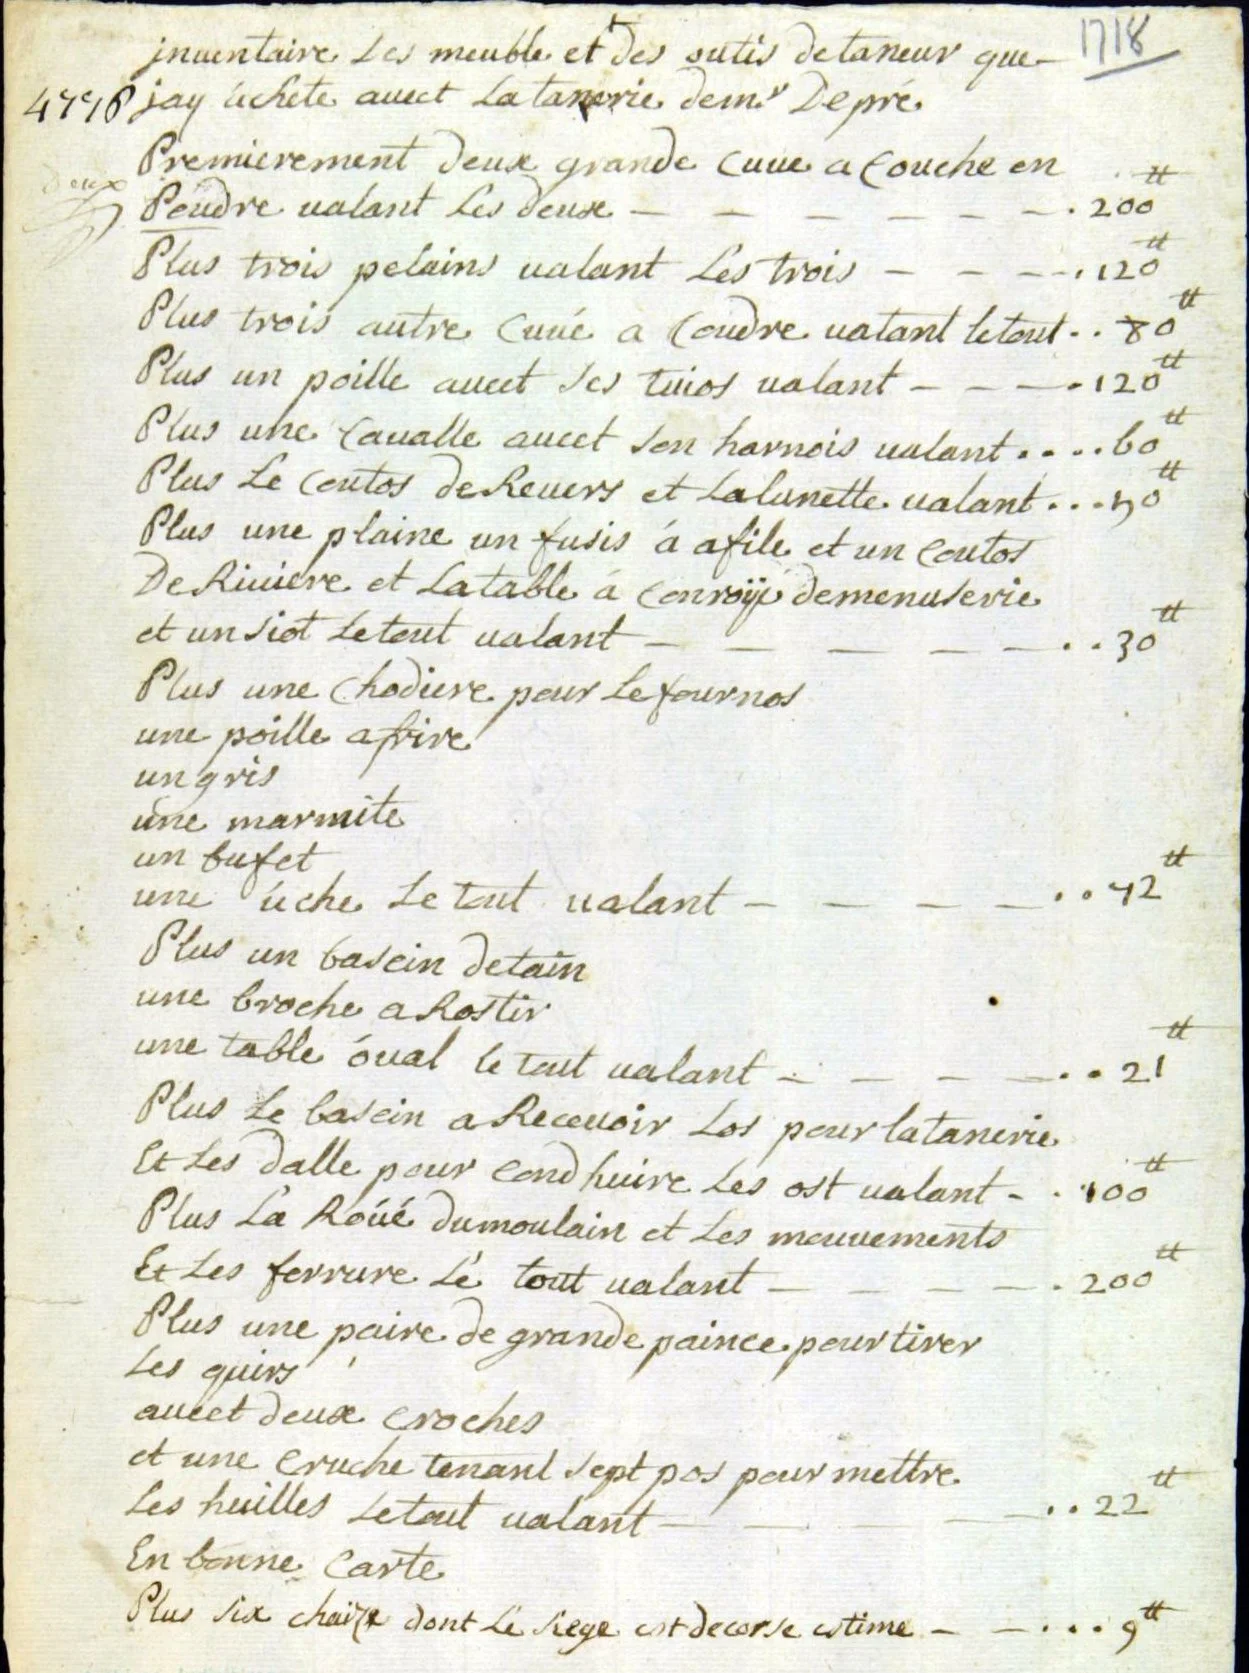 1718
jnuentaire Les meuble et des outis detaneur que
4776 jay ùchete auect Latanerie dem.r Depré
Premierement deux grande Cuue a Couche en
deux
Poudre ualant Les deux — — — — — — . 200 tt
Plus trois pelains ualant Les trois — — — . 120 tt
Plus trois autre Cuué a Coudre ualant letout . . 80 tt
Plus un poille auect ses tuios ualant — — — . 120 tt
Plus une Caualle auect son harnois ualant . . . . 60 tt
Plus Le Coutos deReuers et Lalunette ualant . . . 50 tt
Plus une plaine un fusis á afile et un Coutos
DeRiuiere et Latable á Conroÿé demenuserie
et un siot Letout ualant — — — — — . . 30 tt
Plus une Chodiere pour Lefournos
une poille afrire
un gris
une marmite
un bufet
une ùche Le tout ualant — — — — . . 42 tt
Plus un bassin detain
une broche aRostir
une table óual le tout ualant — — — — . . 21 tt
Plus Le bassin aReceuoir Los pour latanerie
Et Les dalle pour Condhuire Les ost ualant - . 100 tt
Plus La Roúé dumoulain et Les mouuements
Et Les ferrure Lé tout ualant — — — — — . 200 tt
Plus une paire de grande paince pourtirer
Les quirs
auect deux Croches
et une Cruche tenant sept pos pour mettre
Les huilles Letout ualant — — — — . . 22 tt
En bonne Carte
Plus six chaize dont Le siege est decorse estime — — . . . 9 tt